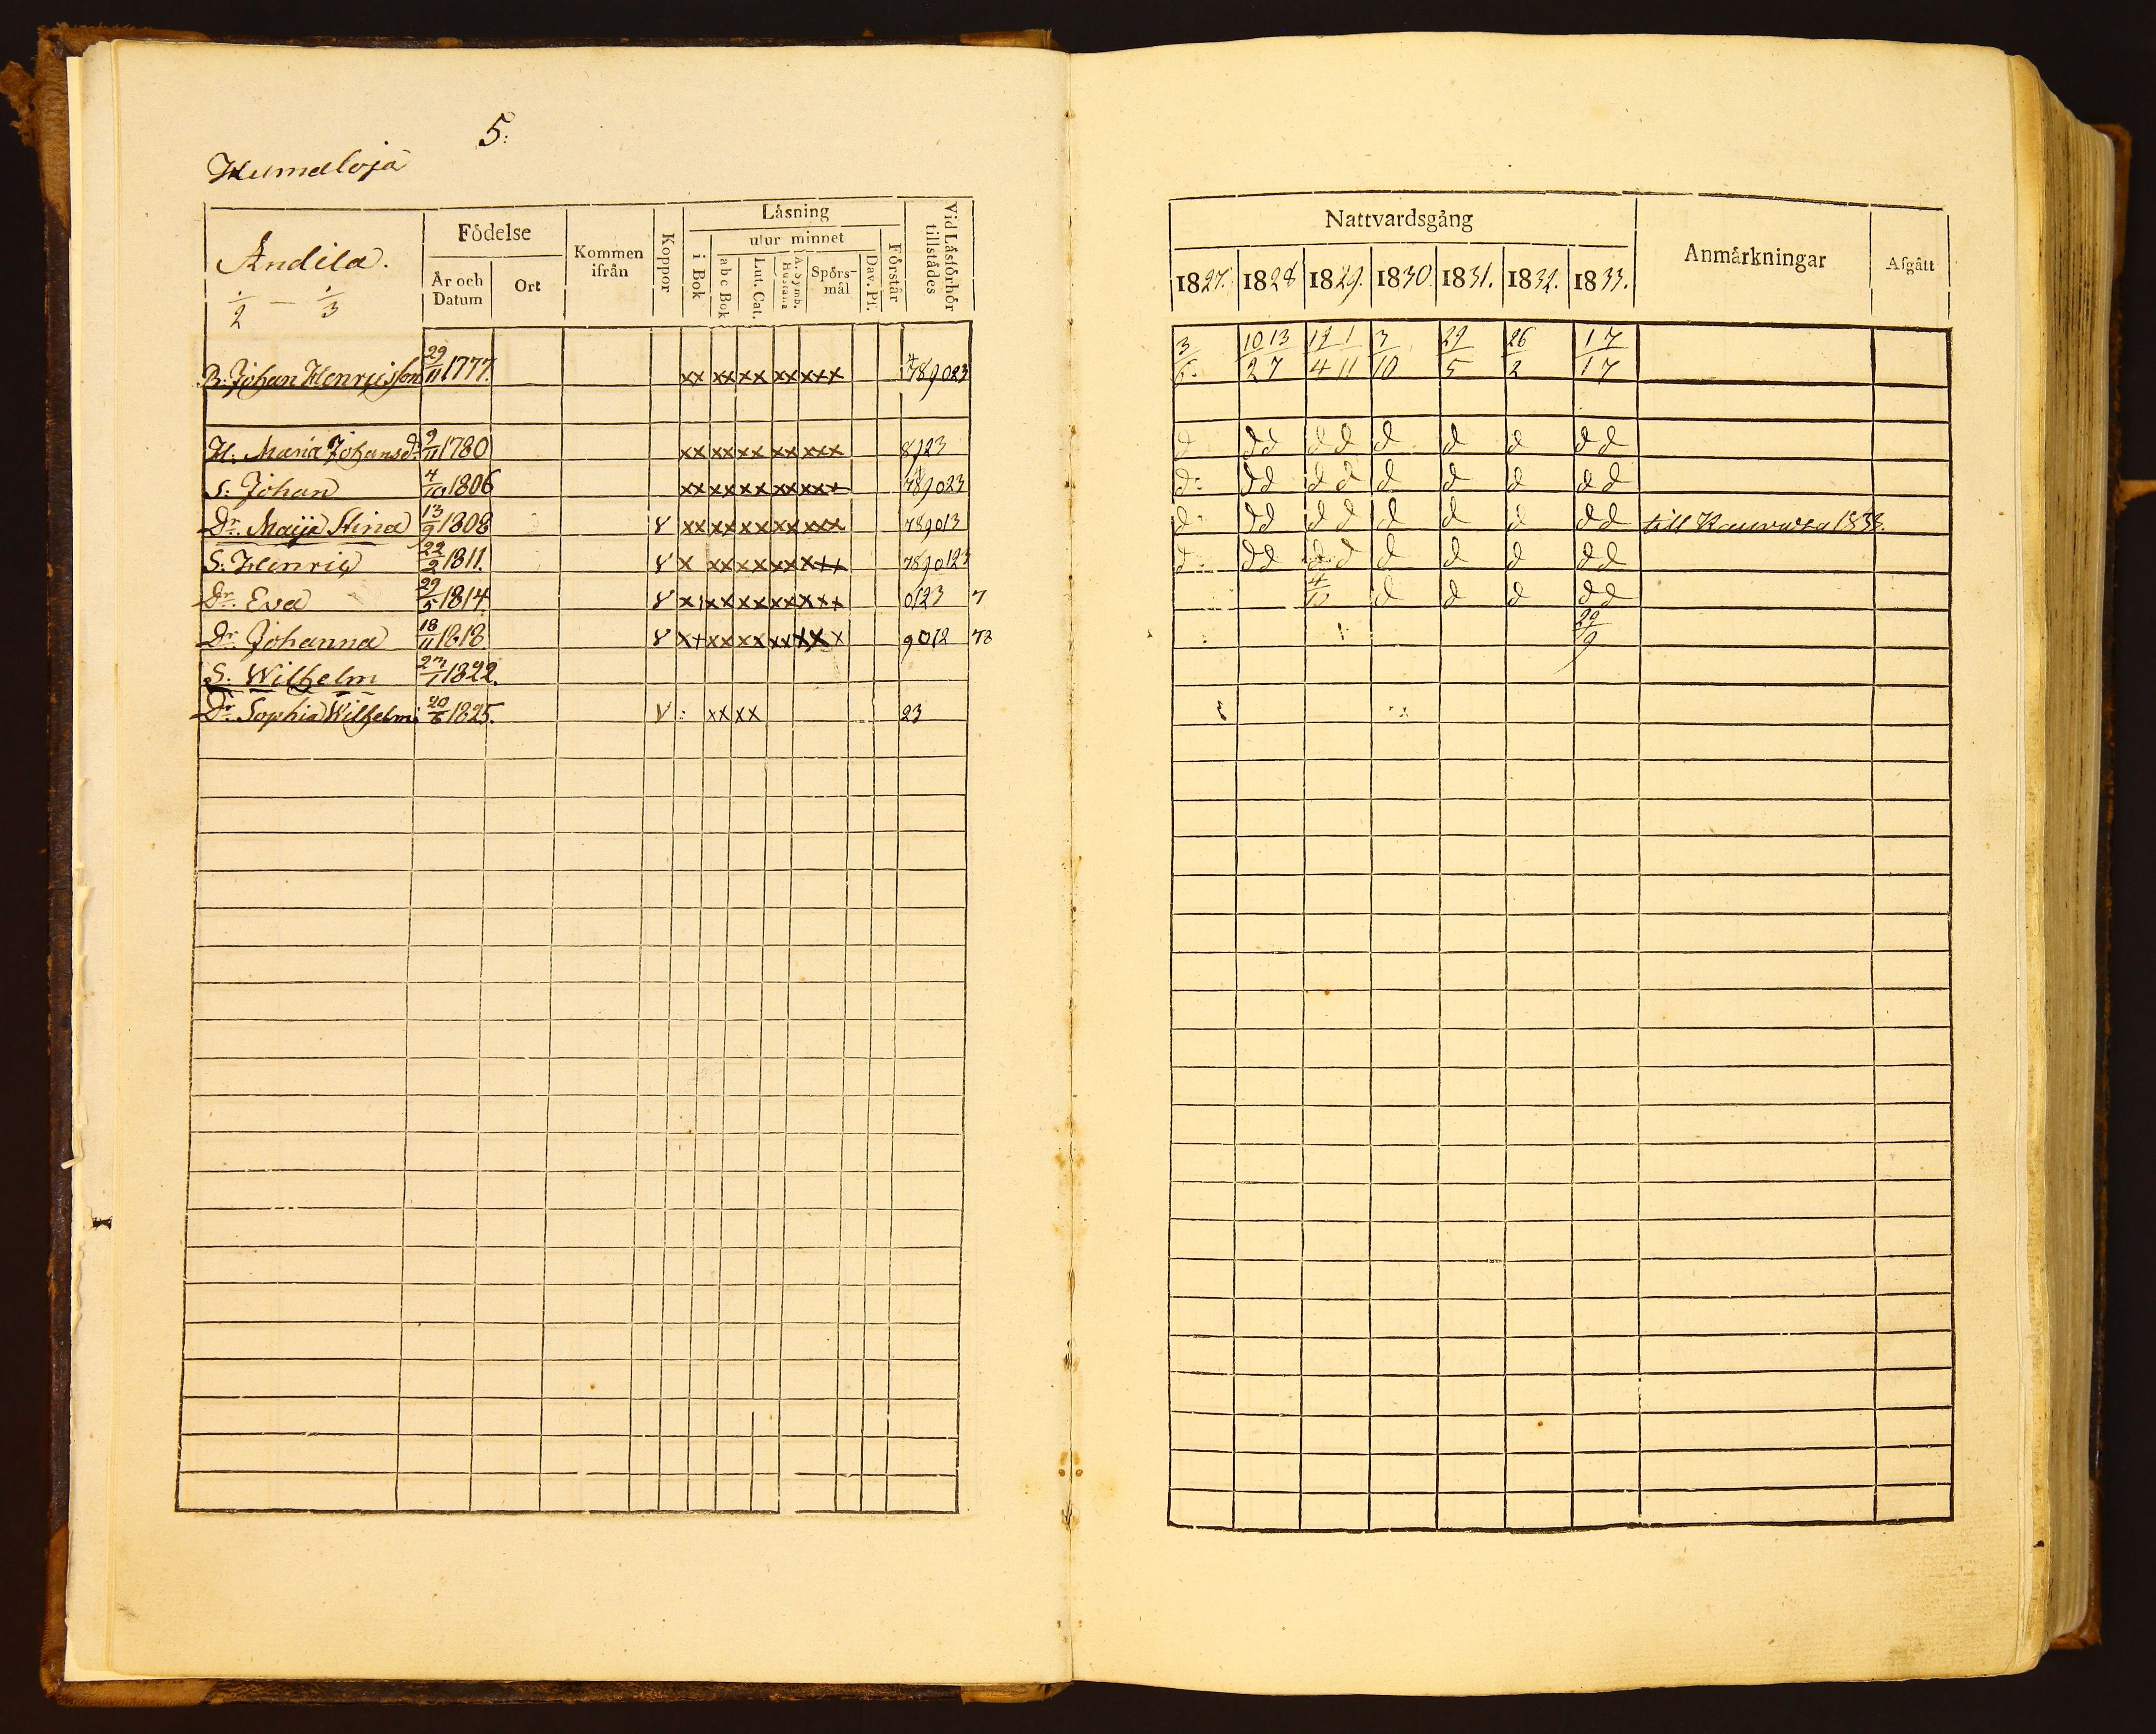 5:
Humaloja
Andila.
1/2 — 1/3
Födelse
År och Datum
Ort
Kommen ifrån
Koppor
Läsning
i Bok
utur minnet
a b c Bok
Lut. Cat.
A. Symb. Hustafla
Spörs-mål
Dav. Ps.
Förstår
Vid Läsförhör tillstädes
B. Johan Henricsson 29/11 1777. xx xx xx xx xxx 4789023
H. Maria Johansdr 9/11 1780 xx xx xx xx xxx 8923
S. Johan 4/10 1806 xx xx xx xx xxx 789023
Dr. Maija Stina 13/9 1808 v xx xx xx xx xxx 789013
S. Henric 22/2 1811. v x xx xx xx xxx 7890123
Dr. Eva 29/5 1814 v x xx xx xx xxx 0123 7
Dr. Johanna 18/11 1818. v xx xx xx xx xxx 9012 73
S. Wilhelm 27/1 1822.
Dr. Sophia Wilhelm: 20/6 1825. v: xx xx 23
Nattvardsgång
Anmärkningar
Afgått
1827. 1828 1829. 1830. 1831. 1832. 1833.
3 10 13 12 1 3 29 26 17
6. 2 7 4 11 10 5 2 17
d dd dd d d d dd
d: dd dd d d d dd
d: dd dd d d d dd till 1833.
d: dd dd d d d dd
4/10 d d d dd
29/9